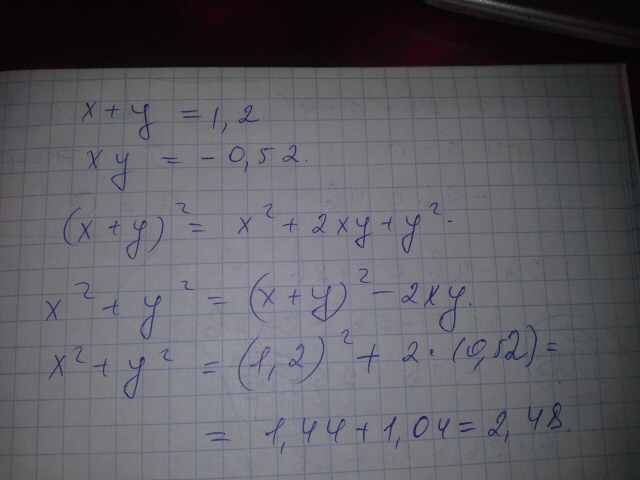 x + y = 1,2
xy = - 0,52.
(x + y)² = x² + 2xy + y².
x² + y² = (x + y)² - 2xy.
x² + y² = (1,2)² + 2 · (0,52) =
= 1,44 + 1,04 = 2,48.